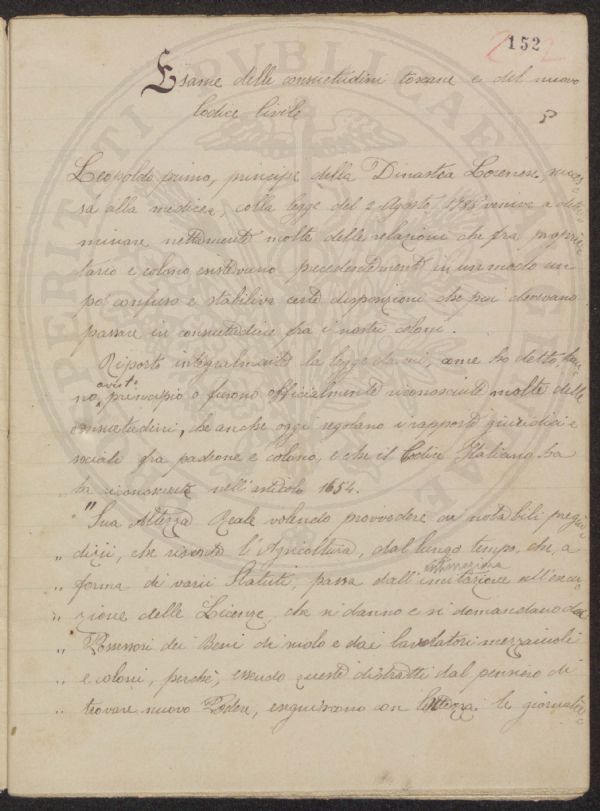 152
Esame delle consuetudini toscane e del nuovo
Codice Civile
Leopoldo primo, principe della Dinastia Lorenese, succes
sa alla medicea, colla legge del 2 Agosto 1785 veniva a deter
minare nettamente molte delle relazioni che fra proprie
tario e colono esistevano precedentemente in un modo un
po' confuso e stabiliva certe disposizioni che poi dovevano
passare in consuetudine fra i nostri coloni.
Riporto integralmente la legge da cui, come ho detto, han
no avuto principio o furono officialmente riconosciute molte delle
consuetudini, che anche oggi regolano i rapporti giuridici e
sociali fra padrone e colono, e che il Codice Italiano ha
ha riconosciute nell'articolo 1654.
"Sua Altezza Reale volendo provvedere ai notabili pregiu
" dizii, che risente l'Agricoltura, dal lungo tempo, che, a
" forma di varii Statuti, passa dall'intimazione all'esecu
" zione delle Licenze, che si danno e si domandano dai
" Possessori dei Beni di suolo e dai lavoratori mezzaiuoli
" e coloni, perchè, essendo questi distratti dal pensiero di
" trovare nuovo Podere, eseguiscono con lentezza le giornalie